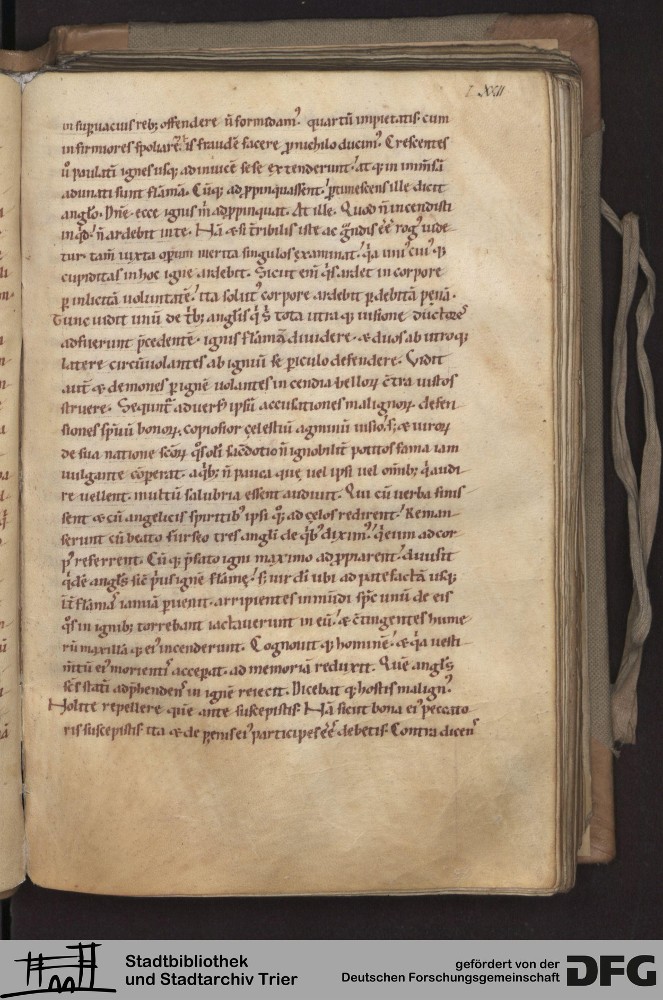 LXXII
in supuacuis reb; offendere ñ formidam᾿. quartũ impietatis. cum
infirmiores spoliare & eis fraudẽ facere ꝓ nichilo ducim᾿. Crescentes
ů paulatĩ ignes usq; ad inuicẽ sese extenderunt. atq; in immsã
adunati sunt flãmã. Cũq; adꝓpinquassent. ptimescens ille dicit
anglo. Dñe ecce ignis m̃ adꝓpinquat. At ille. Quod ñ incendisti
inqd. ñ ardebit in te. Nã & si tribilis iste ac g̃ndis eẽ rog᾿ uide
tur. tam̃ iuxta opum merita singulos examinat. q̃a uni᾿ cui᾿ q;
cupiditas in hoc igne ardebit. Sicut em̃ q̃s ardet in corpore
p inlicitã uoluntatẽ. ita solut᾿ corpore ardebit p debitã penã.
Tunc uidit unũ de trib; anglis q̃ s̃ tota utraq; uisione ductores
adfuerunt pcedentẽ ignis flammã diuidere. & duos ab utroq;
latere circũuolantes ab igniũ se piculo defendere. Vidit
aut̃ & demones p ignẽ uolantes incendia bellorꝝ c̃tra iustos
struere. Sequnt᾿ aduers᾿ ipsũ accusationes malignorꝝ. defen
siones spũum bonorꝝ. copiosior celestiũ agminũ uisio. s; & uirorꝝ
de sua natione scorꝝ q̃s olĩ sacdotio ñ ignobilit᾿ potitos fama iam
uulgante cõperat. a q̃b; ñ pauca que uel ipsi uel omib; q̃ audi
re uellent. multũ salubria essent audiuit. Qui cũ uerba finis
sent & cũ angelicis spiritib᾿ ipsi q᾿; ad celos redirent. Reman
serunt cũ beato furseo tres angli de q̃b᾿ dixim᾿. q̃ eum ad cor
p᾿ referrent. Cũ q; p̃fato igni maximo adꝓpiarent. diuisit
q̃dẽ angls sic̃ p᾿us ignẽ flãme. s; uir dĩ ubi ad patefactã usq;
int̃ flãmas ianuã puenit. arripientes inmũdi sp̃c unũ de eis
q᾿s in ignib; torrebant iactauerunt in eũ. & c̃tingentes hume
rũ maxillã q; ei᾿ incenderunt. Cognouit q; hominẽ. & q̃a uesti
mt̃ũ ei᾿ morientis acceperat. ad memoriã reduxit. Quẽ angls
scs̃ statĩ adp̃hendens in ignẽ reiecit. Dicebat q; hostis malign᾿.
Nolite repellere quẽ ante suscepistis. Nã sicut bona ei᾿ peccato
ris suscepistis. ita & de penis ei᾿ participes eẽ debetis. Contra dicens
Stadtbibliothek
und Stadtarchiv Trier
gefördert von der
Deutschen Forschungsgemeinschaft
DFG